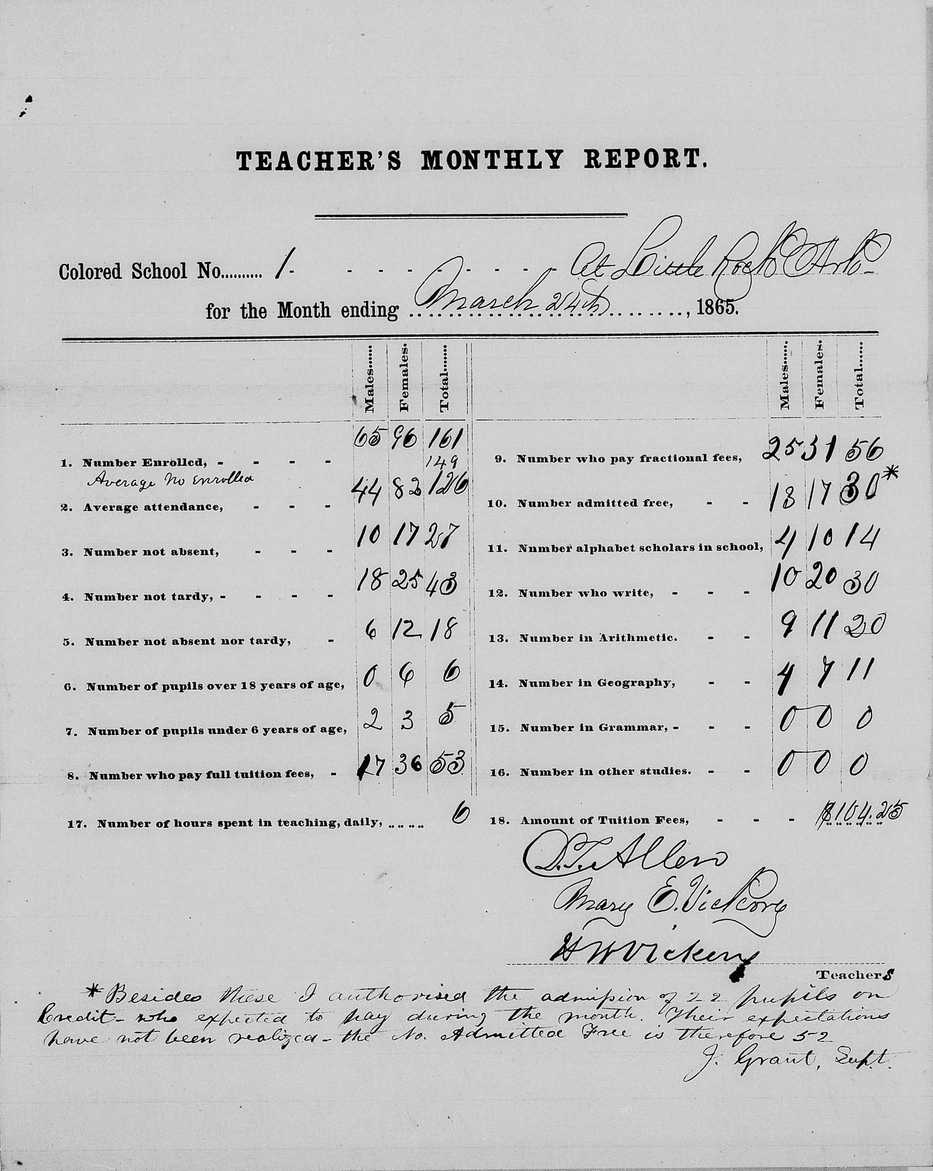 TEACHER'S MONTHLY REPORT.
Colored School No.......... 1 - - - - - - - - At Little Rock Ark-
for the Month ending March 24th ........, 1865.
Males...... Females. Total.......
1. Number Enrolled, - - - - 65 96 161
Average No Enrolled 149
2. Average attendance, - - - 44 82 126
3. Number not absent, - - - 10 17 27
4. Number not tardy, - - - - 18 25 43
5. Number not absent nor tardy, - 6 12 18
6. Number of pupils over 18 years of age, 0 6 6
7. Number of pupils under 6 years of age, 2 3 5
8. Number who pay full tuition fees, - 17 36 53
17. Number of hours spent in teaching, daily, ..... 6
Males..... Females. Total......
9. Number who pay fractional fees, 25 31 56
10. Number admitted free, - - 13 17 30*
11. Number alphabet scholars in school, 4 10 14
12. Number who write, - - - 10 20 30
13. Number in Arithmetic. - - 9 11 20
14. Number in Geography, - - 4 7 11
15. Number in Grammar, - - - 0 0 0
16. Number in other studies. - - 0 0 0
18. Amount of Tuition Fees, - - - $104.25
D.T. Allen
Mary E. Vickery
H W Vickery
Teachers
*Besides these I authorised the admission of 22 pupils on
Credit - who expected to pay during the month. Their expectations
have not been realized - the No. Admitted Free is therefore 52
J. Grant, Supt.